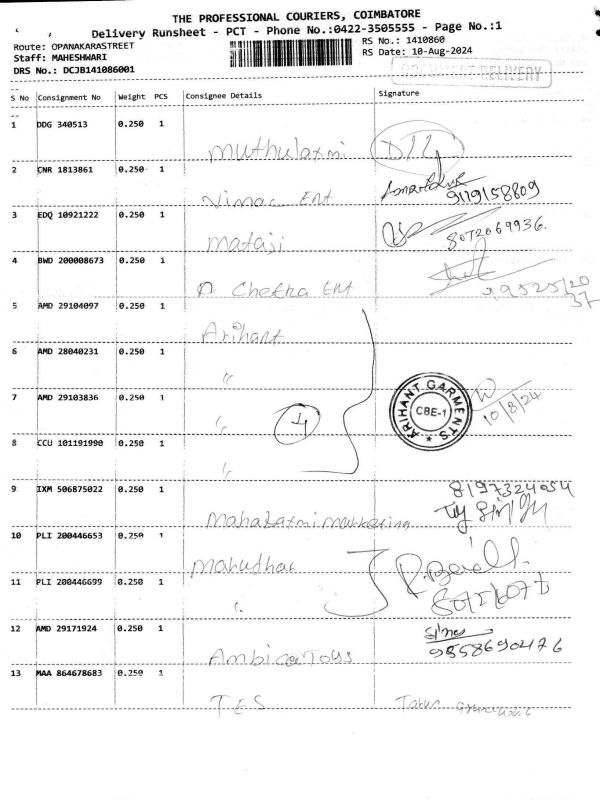 THE PROFESSIONAL COURIERS, COIMBATORE
Delivery Runsheet - PCT - Phone No.:0422-3505555 - Page No.:1
Route: OPANAKARASTREET
RS No.: 1410860
Staff: MAHESHWARI
RS Date: 10-Aug-2024
DRS No.: DCJB141086001
DOCUMENT DELIVERY
S No Consignment No Weight PCS Consignee Details Signature
1 DDG 340513 0.250 1
Muthulaxmi
2 CNR 1813861 0.250 1
Vimac Ent 9119158809
3 EDQ 10921222 0.250 1
Mataji 8072069936.
4 BWD 200008673 0.250 1
Chetna Ent 99525/20
37
5 AMD 29104097 0.250 1
Arihant
6 AMD 28040231 0.250 1
"
7 AMD 29103836 0.250 1
" 4 ARIHANT GARMENTS CBE-1 10/8/24
8 CCU 101191990 0.250 1
"
9 IXM 506875022 0.250 1 8197324054
Mahalaxmi Marketing
10 PLI 200446653 0.250 1
Marudhar
11 PLI 200446699 0.250 1
"
12 AMD 29171924 0.250 1
Ambica Toys 9558690476
13 MAA 864678683 0.250 1
TES